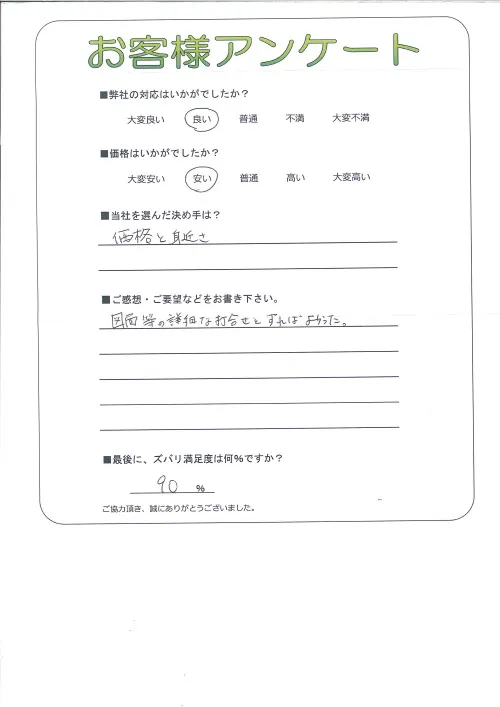 お客様アンケート
■弊社の対応はいかがでしたか？
大変良い 良い 普通 不満 大変不満
■価格はいかがでしたか？
大変安い 安い 普通 高い 大変高い
■当社を選んだ決め手は？
価格と身近さ
■ご感想・ご要望などをお書き下さい。
図面等の詳細な打合せとすればよかった。
■最後に、ズバリ満足度は何％ですか？
90 ％
ご協力頂き、誠にありがとうございました。